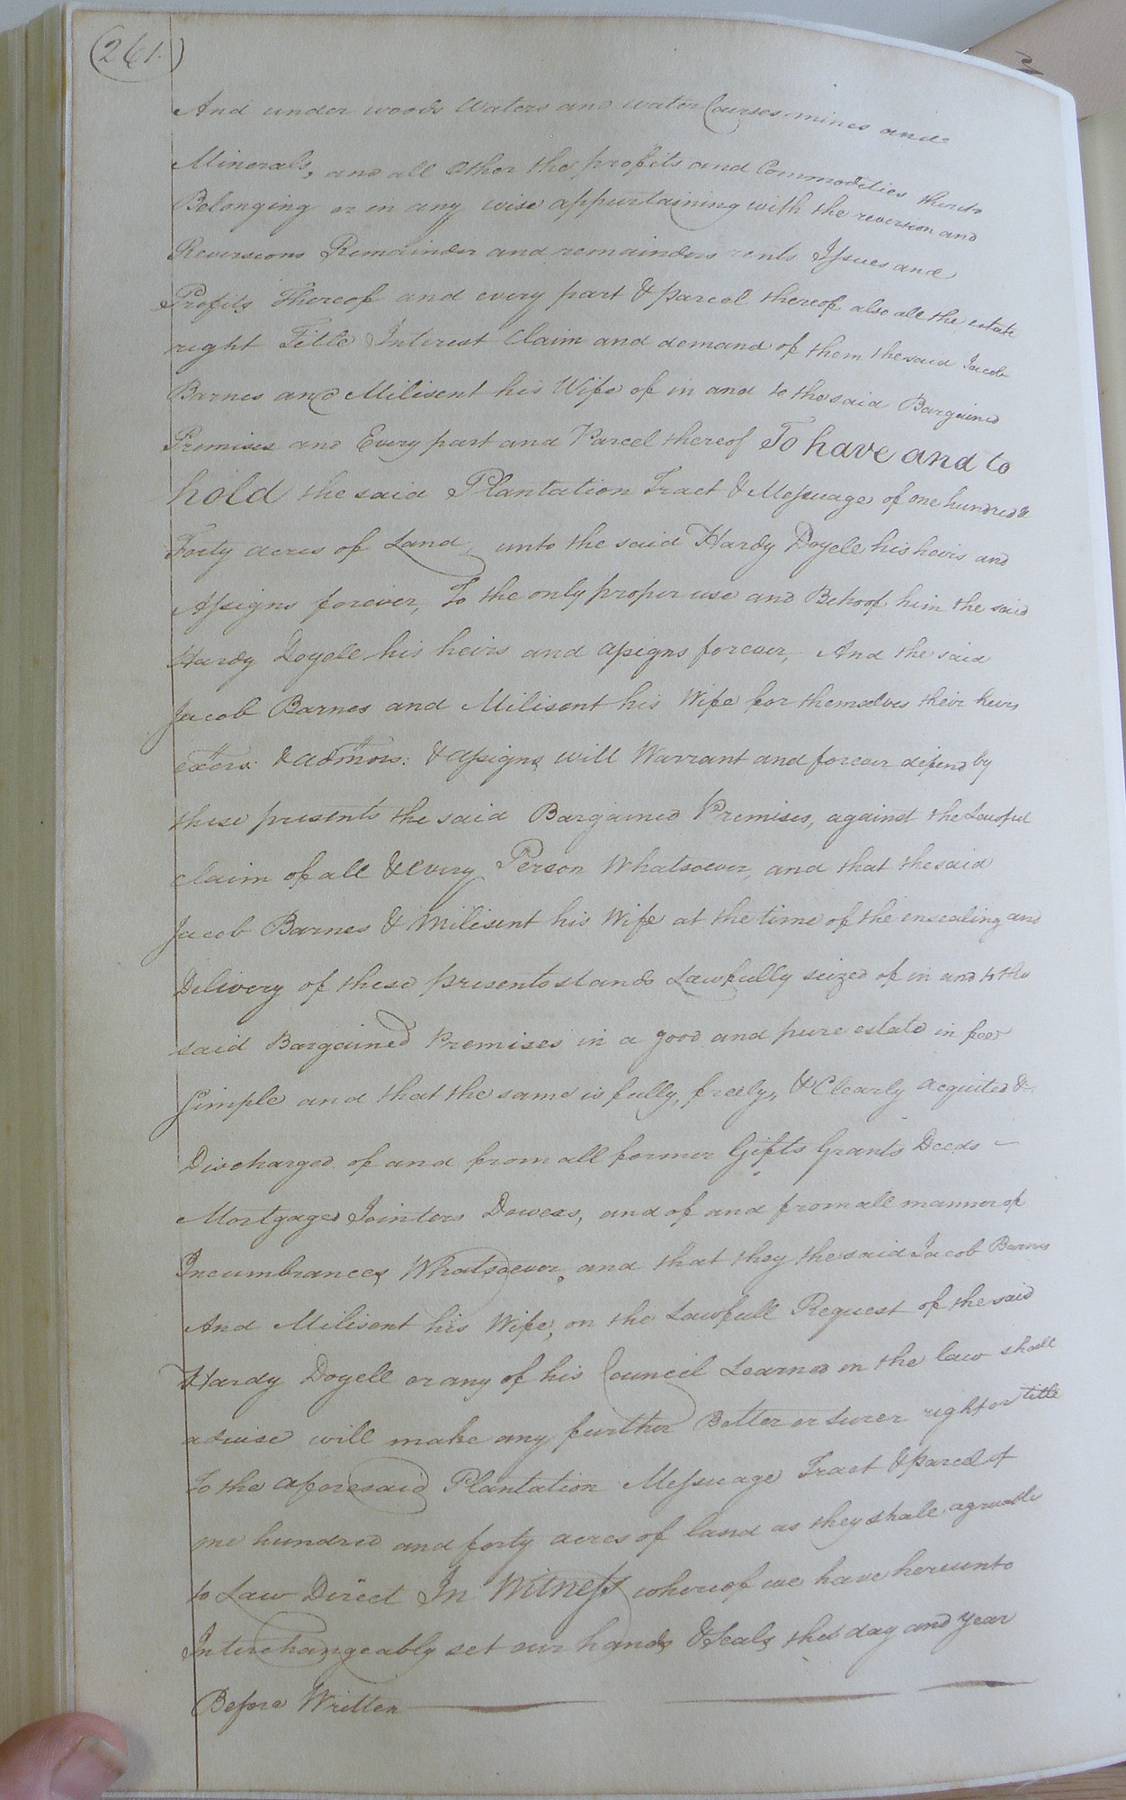 (261.)
And under woods Waters and water Courses mines and
Minerals, and all other the profits and Commodities thereto
Belonging or in any wise appurtaining with the reversion and
Reversions Remainder and remainders rents Issues and
Profits thereof and every part & parcel thereof also all the estate
right Title Interest Claim and demand of them the said Jacob
Barnes and Milisent his Wife of in and to the said Bargained
Premises and Every part and Parcel thereof To have and to
hold the said Plantation Tract & Messuage of one hundred &
Forty acres of Land, unto the said Hardy Doyell his heirs and
Assigns forever, To the only proper use and Behoof him the said
Hardy Doyell his heirs and assigns forever, And the said
Jacob Barnes and Milisent his Wife for themselves their heirs
extors: & admors: & assigns will Warrant and forever defend by
these presents the said Bargained Premises, against the Lawful
claim of all & every Person Whatsoever, and that the said
Jacob Barnes & Milisent his Wife at the time of the ensealing and
Delivery of these presents stands Lawfully seized of in and to the
said Bargained Premises in a good and pure estate in fee
Simple and that the same is fully, freely, & Clearly acquited &
Discharged of and from all former Gifts Grants Deeds —
Mortgages Jointors Dowers, and of and from all manner of
Incumbrances Whatsoever, and that they the said Jacob Barnes
And Milisent his Wife, on the Lawfull Request of the said
Hardy Doyell or any of his Council Learned in the law shall
advise will make any further Better or surer right or title
To the aforesaid Plantation Messuage Tract & parcel of
one hundred and forty acres of land as they shall agreeable
to Law Direct In Witness whereof we have hereunto
Interchangeably set our hands & Seals the day and year
Before Written